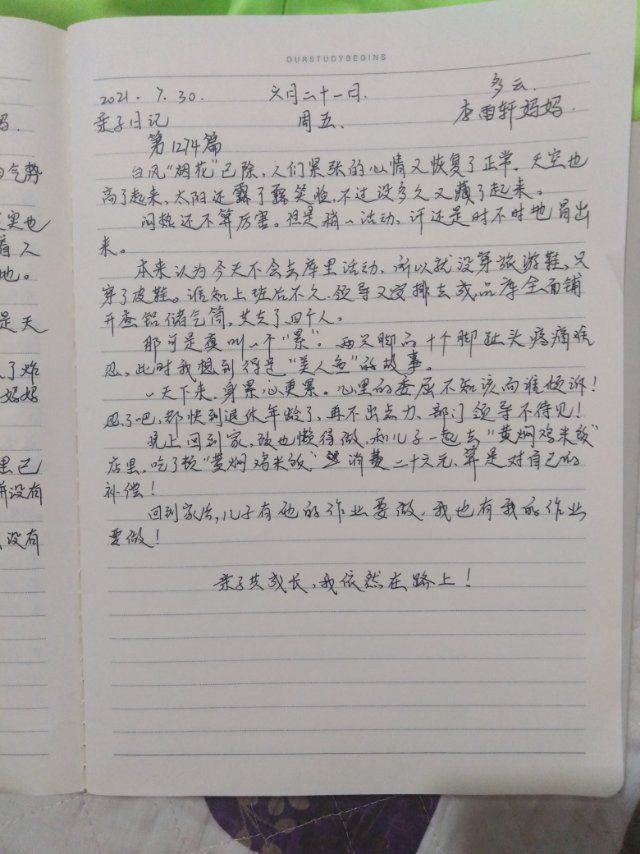 OURSTUDYBEGINS
2021.7.30. 六月二十一日. 多云.
亲子日记 周五. 李雨轩妈妈.
第1274篇
台风“烟花”已除,人们紧张的心情又恢复了正常.天空也
高了起来,太阳还露了露笑脸,不过没多久又藏了起来。
闷热还不算厉害。但是稍一活动,汗还是时不时地冒出
来。
本来认为今天不会去库里活动,所以就没穿旅游鞋,又
穿了皮鞋。谁知上班后不久,领导又安排去成品库全面铺
开查铝储气筒,共去了四个人。
那可是真叫一个“累”。两只脚的十个脚趾头疼痛难
忍,此时我想到得是“美人鱼”的故事。
一天下来,身累心更累。心里的委屈不知该向谁倾诉!
忍了吧,都快到退休年龄了,再不出点力,部门领导不待见!
晚上回到家,饭也懒得做,和儿子一起去“黄焖鸡米饭”
店里,吃了顿“黄焖鸡米饭”消费二十六元,算是对自己的
补偿!
回到家后,儿子有他的作业要做,我也有我的作业
要做!
亲子共成长,我依然在路上!
气势
实也
着人
地。
是天
了炸
妈妈
里已
没有
没有